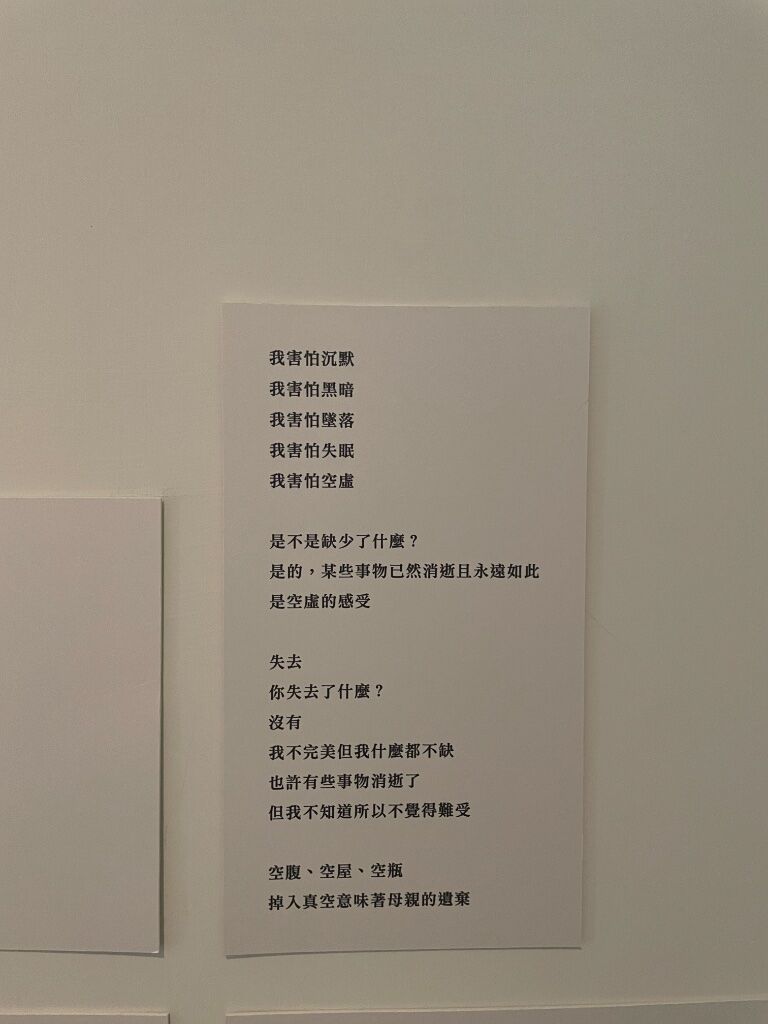 我害怕沉默
我害怕黑暗
我害怕墜落
我害怕失眠
我害怕空虛
是不是缺少了什麼？
是的，某些事物已然消逝且永遠如此
是空虛的感受
失去
你失去了什麼？
沒有
我不完美但我什麼都不缺
也許有些事物消逝了
但我不知道所以不覺得難受
空腹、空屋、空瓶
掉入真空意味著母親的遺棄